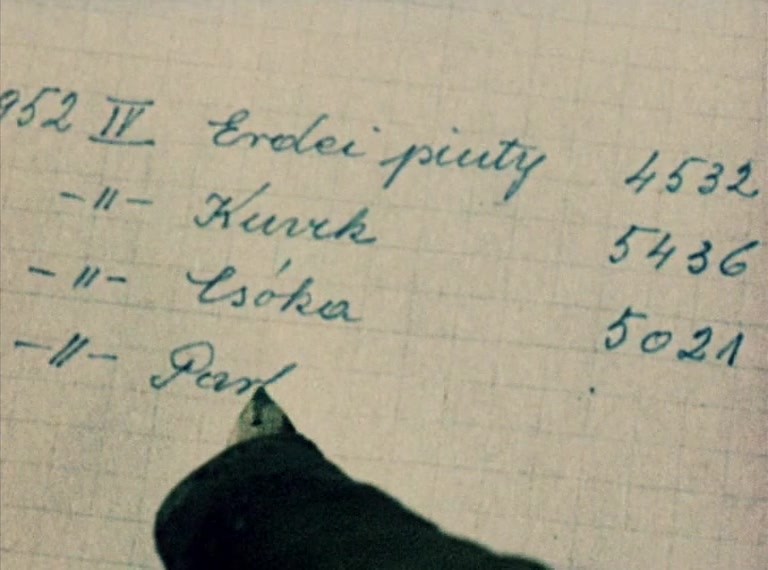 952 IV Erdei pinty 4532
-"- Kuvik 5436
-"- Csóka 5021
-"- Par